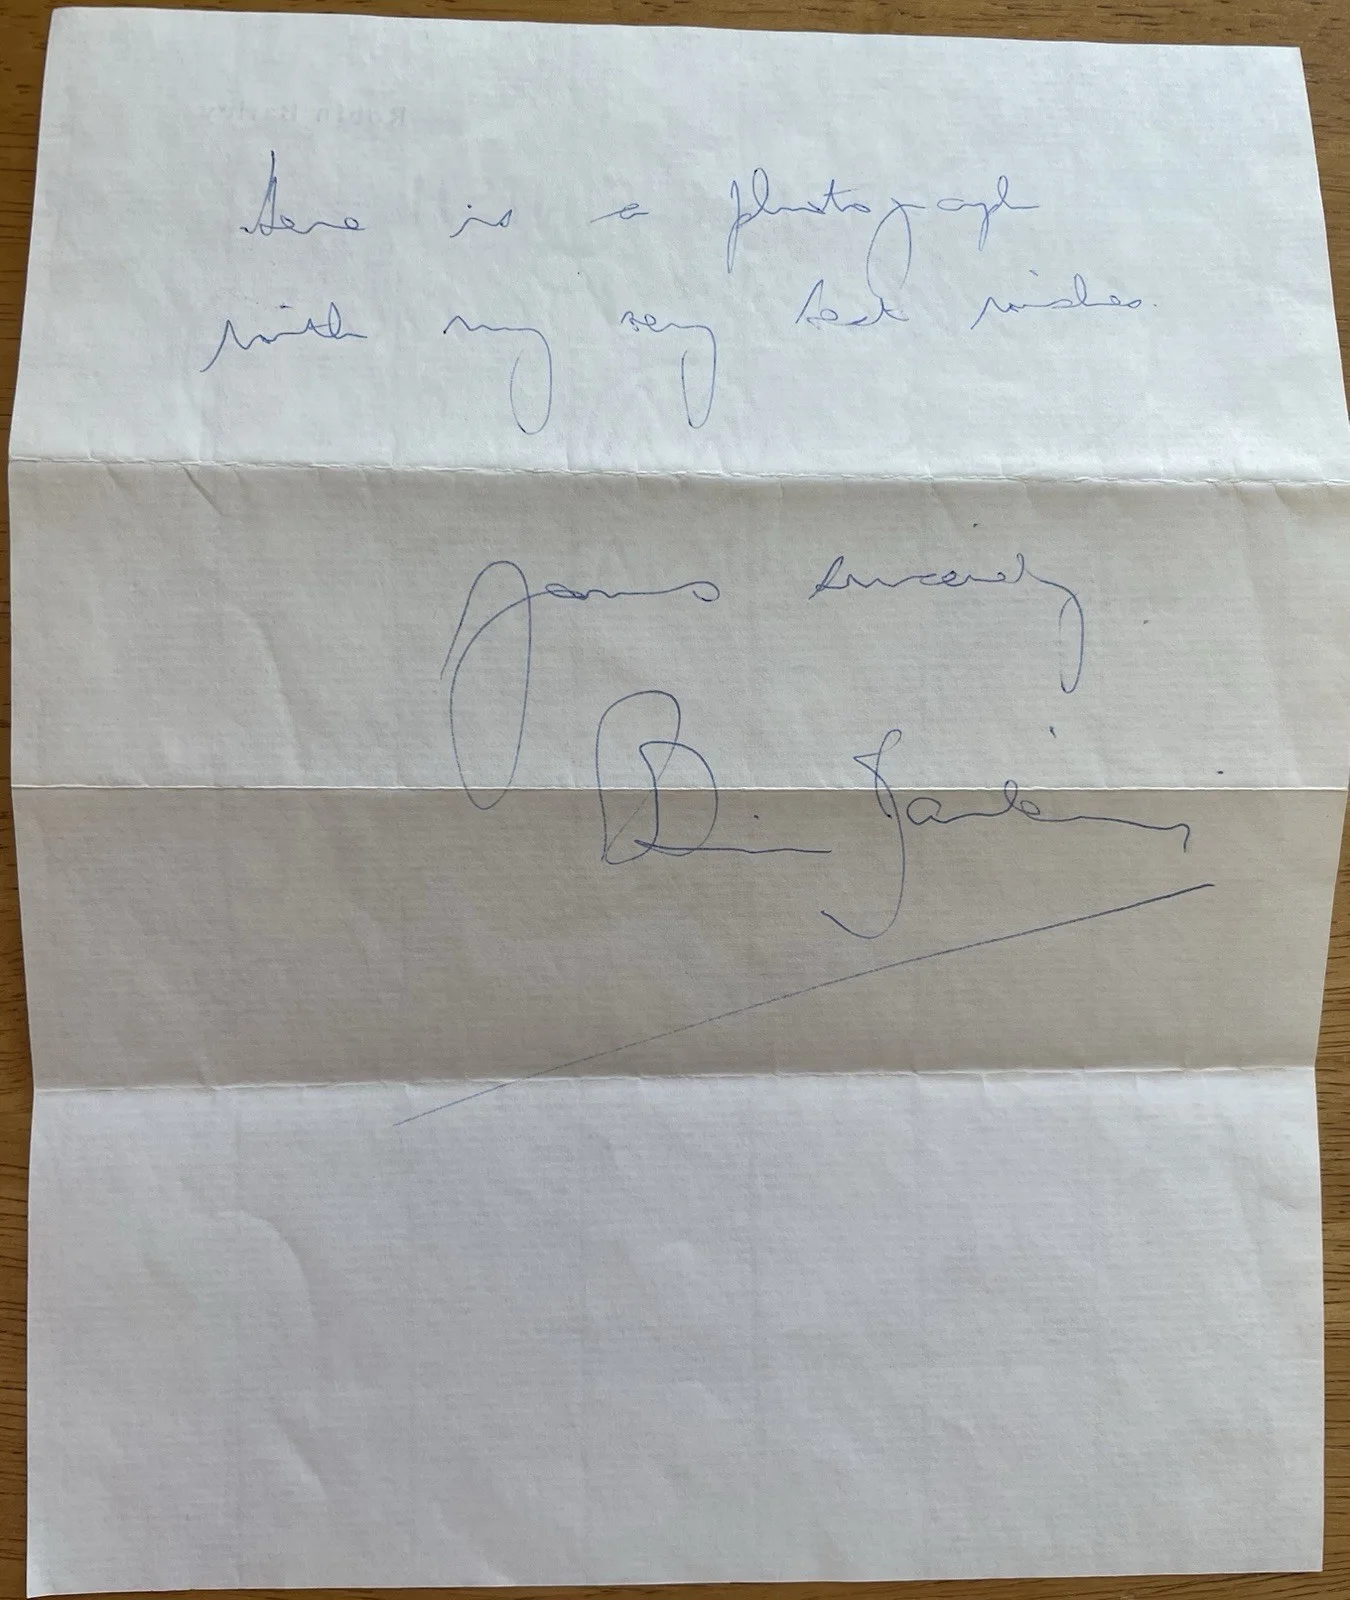 Here is a photograph
with my very best wishes.
Yours sincerely